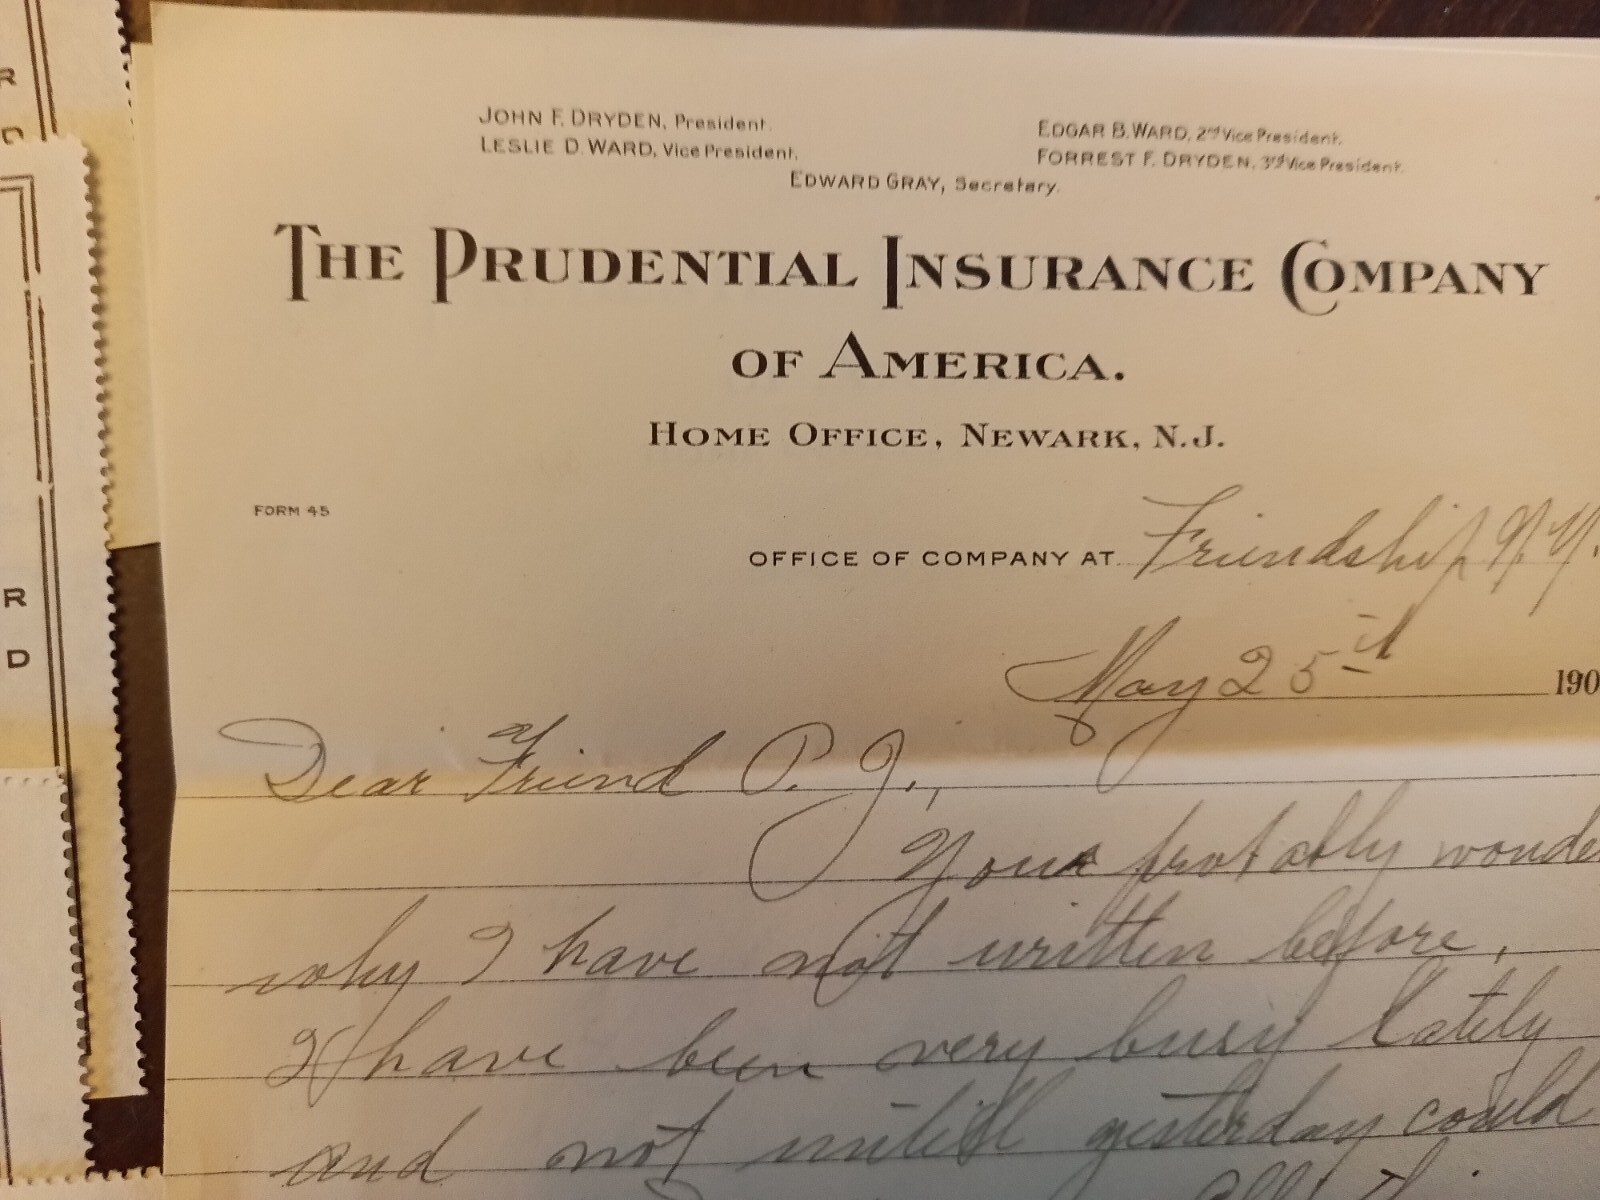 R
D
JOHN F. DRYDEN, President.
LESLIE D. WARD, Vice President.
EDGAR B. WARD, 2nd Vice President.
FORREST F. DRYDEN, 3rd Vice President.
EDWARD GRAY, Secretary.
THE PRUDENTIAL INSURANCE COMPANY
OF AMERICA.
HOME OFFICE, NEWARK, N.J.
FORM 45
OFFICE OF COMPANY AT Friendship N.Y.
May 25th 190
R
D
Dear Friend P. J.,
probably wonde
why I have not written before,
I have been very busy lately
and not untill yesterday could